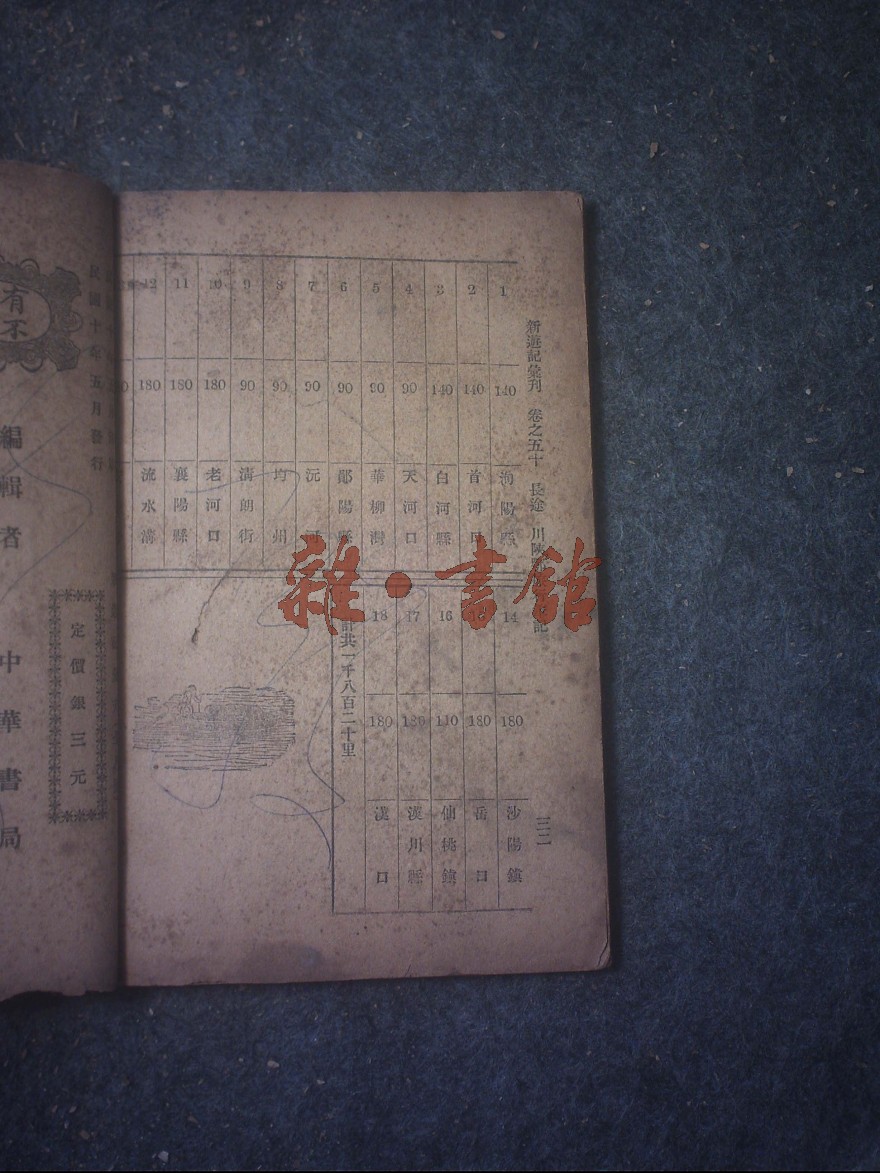 新遊記彙刊 卷之五十 長途 川陝
記
三二
1 140 洵陽縣
2 140 首河口
3 140 白河縣
4 90 天河口
5 90 華柳灣
6 90 鄖陽縣
7 90 沅河
8 90 均州
9 90 清朗街
10 180 老河口
11 180 襄陽縣
12 180 流水溝
14 180 沙陽鎮
180 岳口
16 110 仙桃鎮
17 180 漢川縣
18 180 漢口
計共一千八百二十里
雜·書館
民國十年五月發行
定價銀三元
有不
編輯者 中華書局